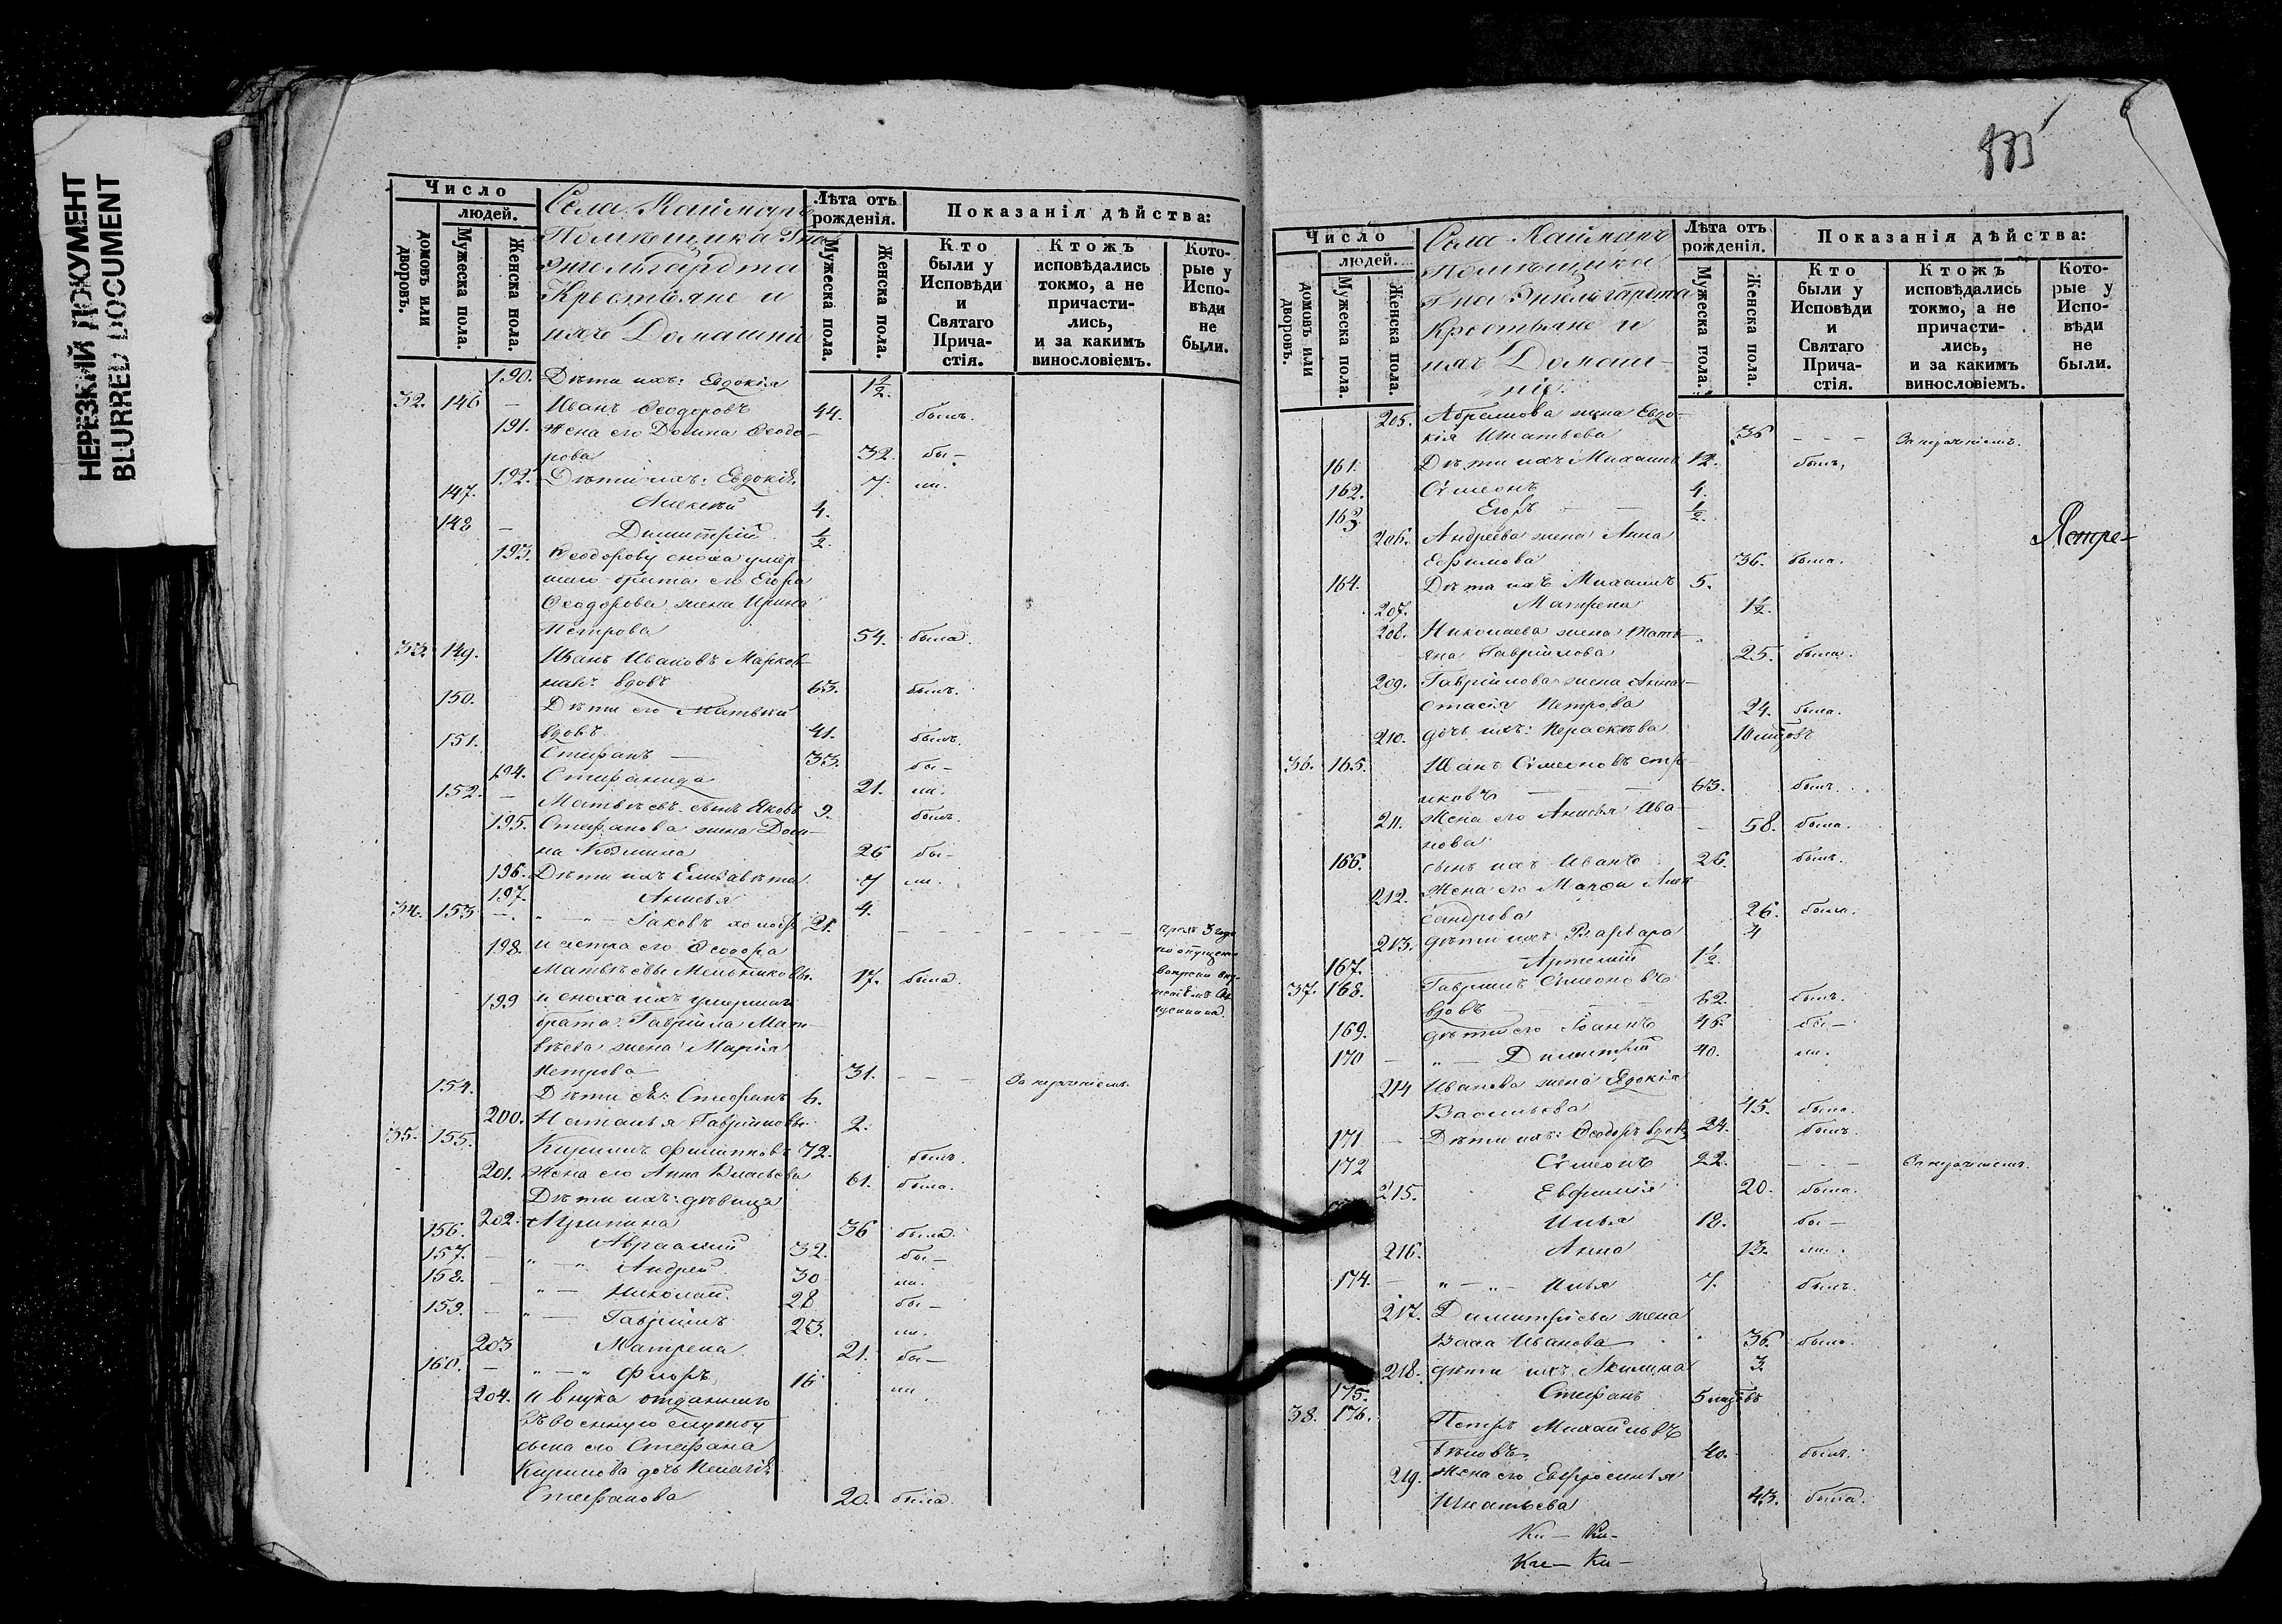 НЕРЕЗКИЙ ДОКУМЕНТ
BLURRED DOCUMENT
Число
людей.
домовъ или дворовъ.
Мужеска пола.
Женска пола.
Села Каймаръ
Помѣщика Гна
Энгельгардта
Крестьяне и
ихъ Домашніе
Лѣта отъ рожденія.
Мужеска пола.
Женска пола.
Показанія дѣйства:
Кто были у Исповѣди и Святаго Прича-стія.
Ктожъ исповѣдались токмо, а не причасти-лись, и за какимъ винословіемъ.
Кото-рые у Испо-вѣди не были.
190. Дѣти ихъ: Евдокія 1½.
32. 146 — Иванъ Ѳеодоровъ 44. былъ.
191. Жена его Домна Ѳеодо-
рова 32. бы-
192. Дѣти ихъ: Евдокія 7. ли.
147. Алексѣй 4.
148 — Димитрій ½.
193. Ѳеодорову сноха умер
шаго брата его Егора
Ѳеодорова жена Ирина
Петрова 54. была.
33. 149. Иванъ Ивановъ
вдовъ 63. былъ.
150. Дѣти его Матвѣй
вдовъ 41. былъ.
151. Стефанъ — 33. бы-
194. Стефанида 21. ли.
152. — Матвѣевъ сынъ Яковъ 9. былъ.
195. Стефанова жена Дом-
на Козмина 26 бы-
196. Дѣти ихъ Елизавета 7 ли.
197. Анисья 4.
34. 153 —. " — " — Іаковъ холостъ 21. — — — —
198. и сестра его Ѳеодора
Матвѣевы Мельниковы. 17. была.
199 и сноха ихъ умершаго
брата Гавріила Мат-
вѣева жена Марія
Петрова 31. — — За нерачніемъ.
154. Дѣти ея: Стефанъ 6.
200. Наталья Гавріиловы 2.
35. 155. Кирилъ Филиповъ 72. былъ.
201. Жена его Анна Васильева 61. была.
Дѣти ихъ: дѣвица
202. Агрипина 36 была.
156. Авраамій 32. бы-
157. — " — " Андрей 30 ли.
158. — " — Николай 28 бы-
159. — " — Гавріилъ 23. ли.
203 Матрена 21. бы-
160. — " — " Флоръ 16 ли.
204. и внука отданнаго
въ военную службу
сына его Стефана
Кирилова дочь Пелагія
Стефанова 20. была.
Число
людей.
домовъ или дворовъ.
Мужеска пола.
Женска пола.
Села Каймаръ
помѣщика
Гна Энгельгардта
Крестьяне и
ихъ Домаш-
ніе.
Лѣта отъ рожденія.
Мужеска пола.
Женска пола.
Показанія дѣйства:
Кто были у Исповѣди и Святаго Прича-стія.
Ктожъ исповѣдались токмо, а не причасти-лись, и за какимъ винословіемъ.
Кото-рые у Испо-вѣди не были.
205. Абрамова жена Евдо-
кія Игнатьева 36 — — — За нерачніемъ.
161. Дѣти ихъ Михаилъ 12. былъ.
162. Сѵмеонъ 4.
163. Егоръ — — ½.
Ястре-
206. Андреева жена Анна
Ефимова 36. была.
164. Дѣти ихъ Михаилъ 5.
207. Матрена 1½.
208. Николаева жена Татья
яна Гавріилова 25. была.
209. Гавріилова жена Анна-
стасія Петрова 24. была.
210. дочь ихъ: Параскѣва 10 мцовъ
36. 165. Иванъ Сѵмеоновъ
63. былъ.
211. Жена его Анисья Ива-
нова — 58. была.
166. сынъ ихъ Иванъ 26. былъ.
212. Жена его Марѳа Алек
сандрова 26. была.
213. дѣти ихъ Варвара 4
167. Артемій 1½.
37. 168. Гавріилъ Сѵмеоновъ
вдовъ — — 62. былъ.
169. дѣти его Іоаннъ 46. бы-
170 — " — Димитрій 40. ли.
214 Иванова жена Евдокія
Васильева 45. была.
171 — Дѣти ихъ: Ѳеодоръ вдовъ 24. былъ.
172 Сѵмеонъ 22. — — — За нерачніемъ.
215. Евфимія 20. была.
Илья 18. бы-
216. Анна 13. ли.
174. — " — " — Илья 7. былъ.
217. Димитріева жена
Васса Иванова 36. была.
218. дѣти ихъ Акилина 3.
175. Стефанъ 5 мцовъ
38. 176. Петръ Михайловъ
Бѣловъ 40. былъ.
219. Жена его Евфросинья
Игнатьева 43. была.